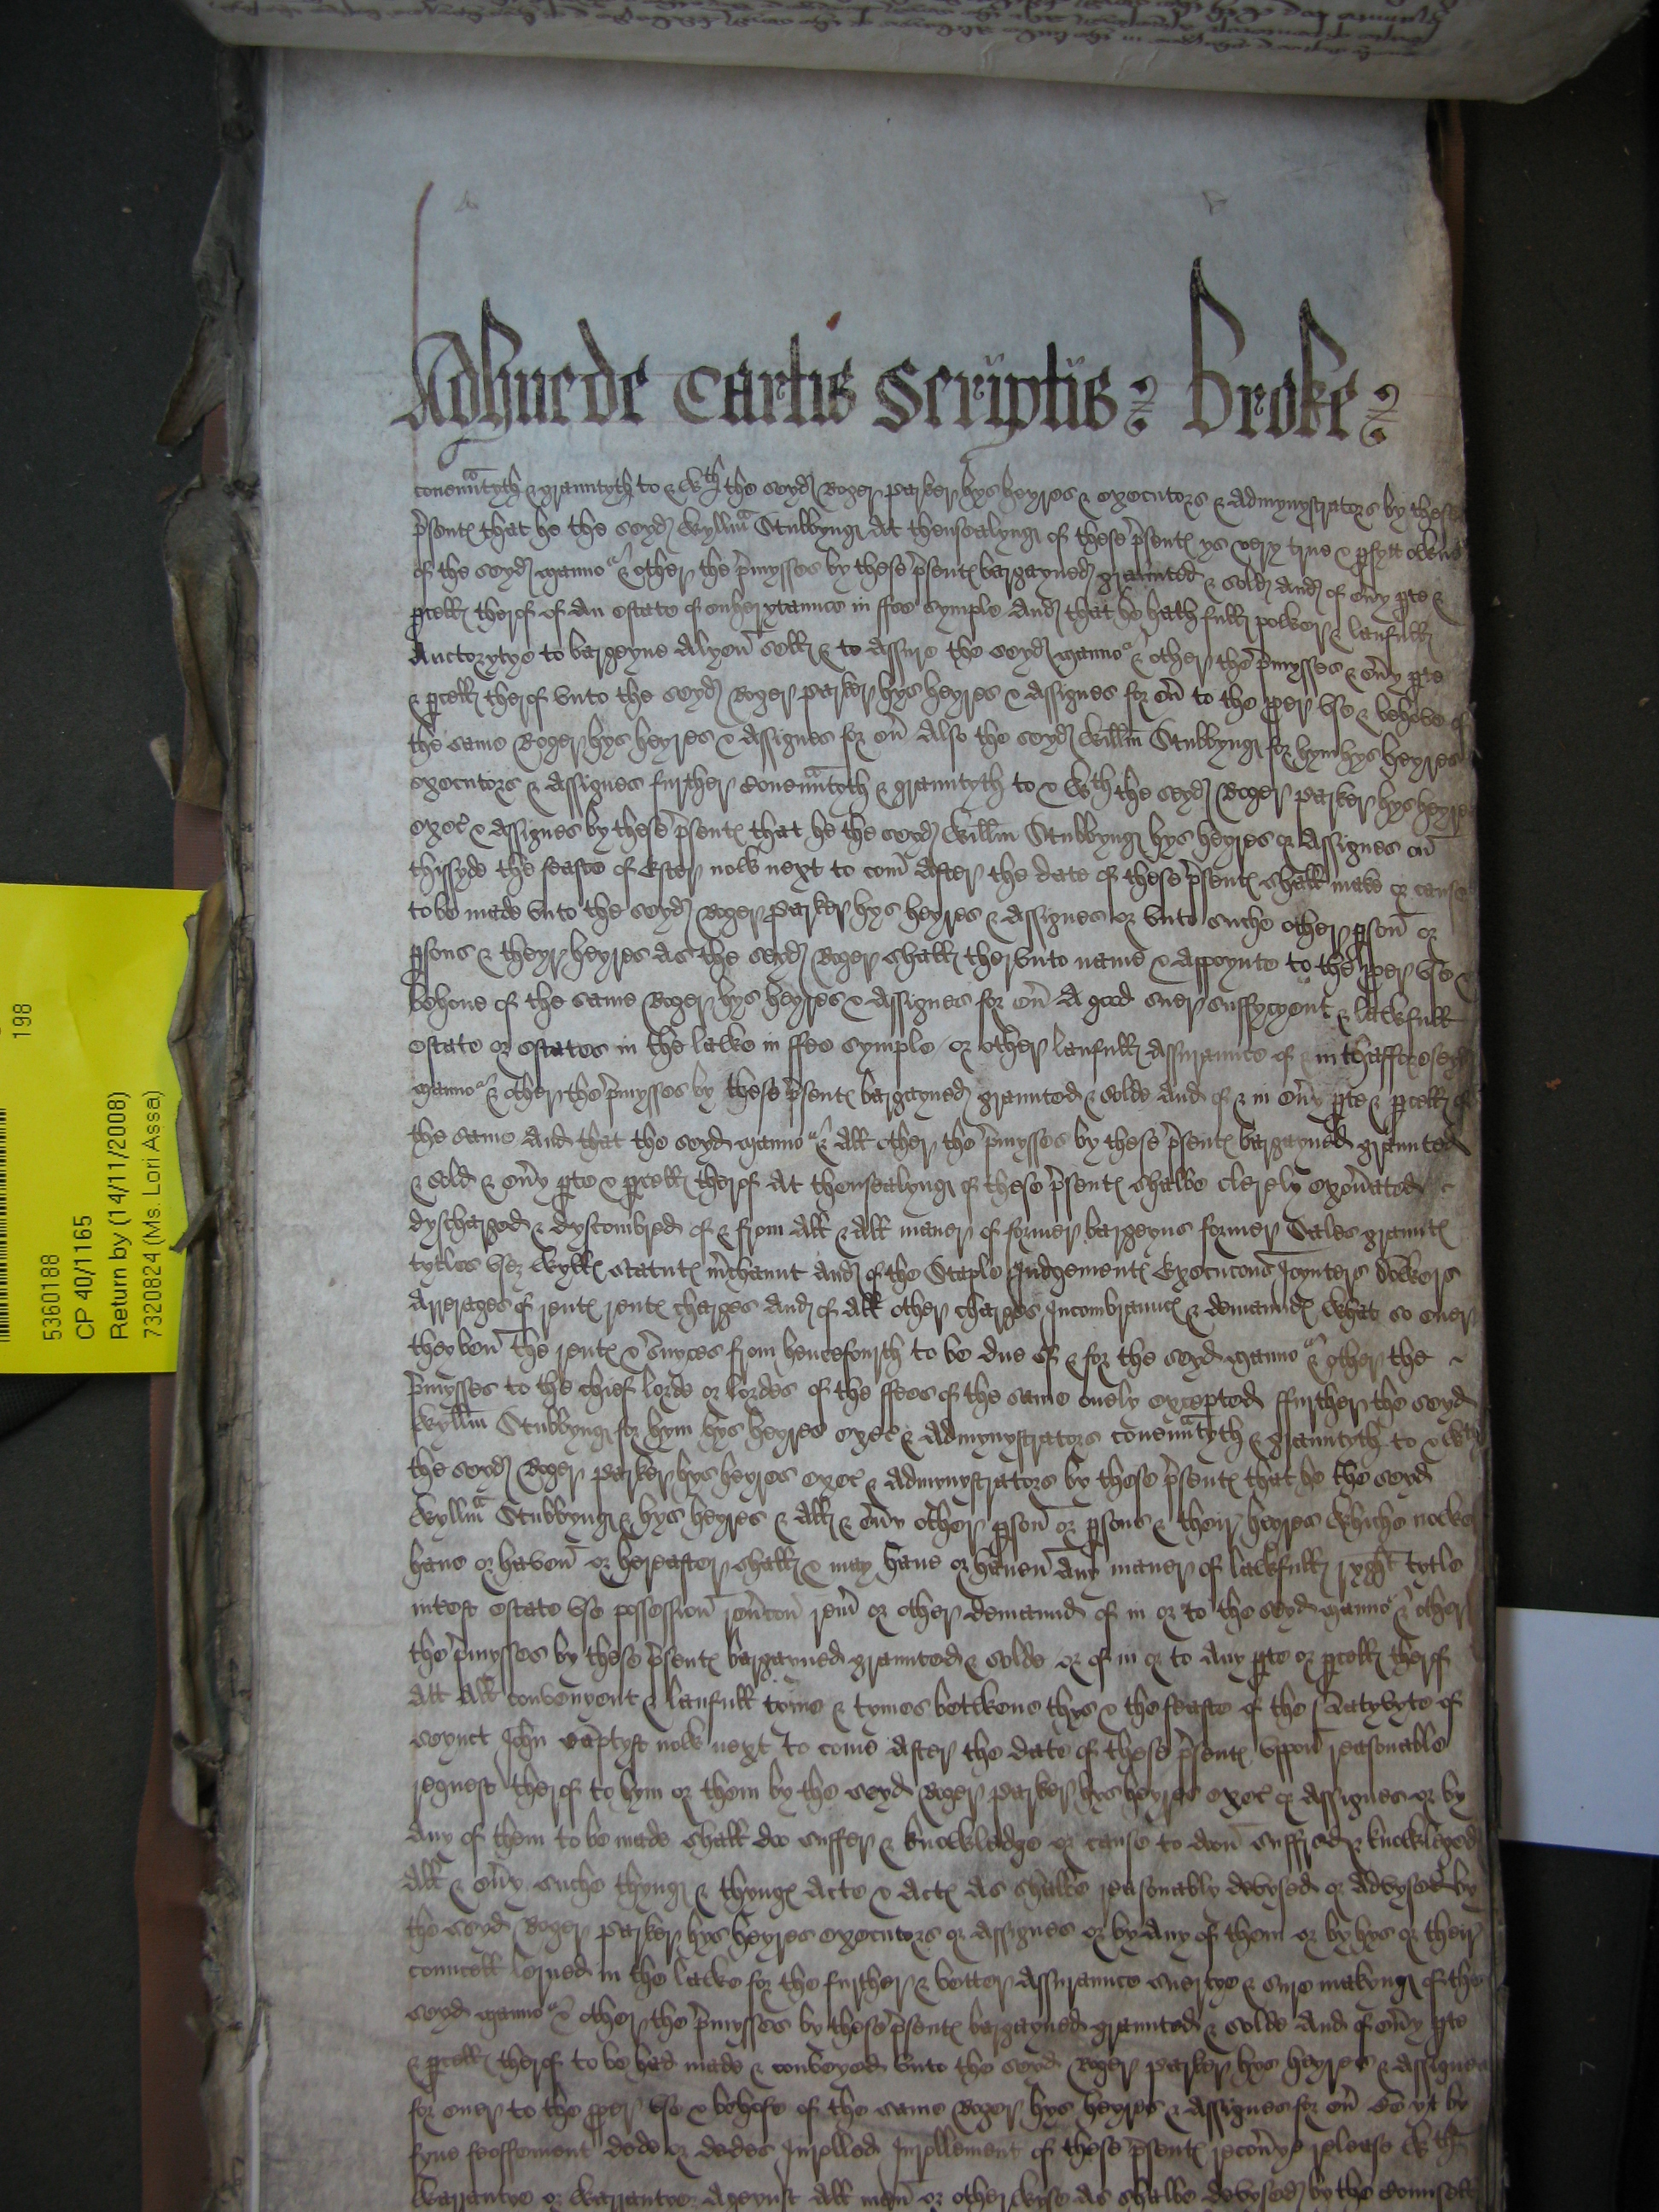 Adhuc de Cartis Scriptis Broke
covenntyth & grauntyth to & wth the seyd Roger Parker hys heyres & executors & admynystrators by these
p̃sent that he the seyd Wyllm̃ Stubbyng at thensealyng of these p̃sent ys very true & pfytt owner
of the seyd manno & other the p̃mysses by these p̃sent bargayned graunted & sold and of eũy pte &
pcell therof of an estate of enherytaunce in ffee symple and that he hath full power & laufull
auctorytye to bargeyne alyen sell & to assure the seyd manno & other the p̃mysses & eũy pte
& pcell therof unto the seyd Roger Parker hys heyres & assignes for eũ to the pper use & behove of
the same Roger hys heyres & assignes for eũ Also the seyd Willm̃ Stubbyng for hym hys heyres
executors & assignes further covenntyth & grauntyth to & wth the seyd Roger Parker hys heyres
exec & assignes by these p̃sent that he the seyd Willm̃ Stubbyng hys heyres or assignes on
thissyde the feaste of Ester now next to com̃ after the date of these p̃sent shall make or cause
to be made unto the seyd Roger Parker hys heyres & assignes or unto suche other pson or
psons & theyr heyres as the seyd Roger shall therunto name & appoynte to the pper use &
behoue of the same Roger hys heyres & assignes for eũ A good suer suffycyent & lawfull
estate or estates in the lawe in ffee symple or other laufull assuraunce of & in thafforeseyd
manno & other the p̃mysses by these p̃sent bargayned graunted & solde And of & in eũy pte & pcell of
the same And that the seyd manno & all other the p̃mysses by these p̃sent bargayned graunted
& sold & eũy pte & pcell therof at thensealyng of these p̃sent shalbe clerely exoñated
dyscharged & dyscombred of & from all & all maner of former bargeyns former Sales graunt
tytles usez wyll statut m̃chaunt and of the Staple Judgement Execucons Joynters dowers
arrerages of rent rent charges and of all other charges Incombraunc & demaund what so euer
they ben The rent & s̃uyces from hencefourth to be due of & for the seyd manno & other the
p̃mysses to the chief lorde or lordes of the ffees of the same onely excepted ffurther the seyd
Wyllm̃ Stubbyng for hym hys heyres exec & admynystrators covenntyth & grauntyth to & wth
the seyd Roger Parker hys heyres exec & admynystrators by these p̃sent that he the seyd
Wyllm̃ Stubbyng & hys heyres & all & eũy other pson or psons & theur heyres whiche nowe
haue or haven or hereafter shall & may haue or hauen any maner of lawfull ryght tytle
interest estate use possession rem̃ or other demaund of in or to the seyd manno & other
the p̃mysses by these p̃sent bargayned graunted & solde or of in or to any pte or pcell therof
att all convenyent & laufull tyme & tymes betwene thys & the feaste of the Natyvyte of
seynt John baptyst now next to come after the date of these p̃sent uppon reasonable
request therof to hym or them by the seyd Roger Parker hys heyres exec or assignes or by
any of them to be made shall doo suffer & knowledge or cause to doon suffred & knowleged
all & eũy suche thyng & thyng acte & act as shalbe reasonably devysed or advysed by
the seyd Roger Parker hys heyres executors or assignes or by any of them or by hys or their
councell lerned in the lawe for the further & better assuraunce suertye & sure makyng of the
seyd manno & other the p̃mysses by these p̃sent bargayned graunted & solde And of eũy pte
& pcell therof to be had made & conveyed unto the seyd Roger Parker hys heyres & assignes
for euer to the pper use & behofe of the same Roger hys heyres & assignes for eũ be yt by
fyne feoffement dede or dedes Inrolled Inrollement of these p̃sent recoũye release wth
warrantye or warrantye ageynst all men or otherwyse as shalbe devysed by the councell
198
5360188
CP 40/1165
Return by (14/11/2008)
7320824 (Ms. Lori Assa)